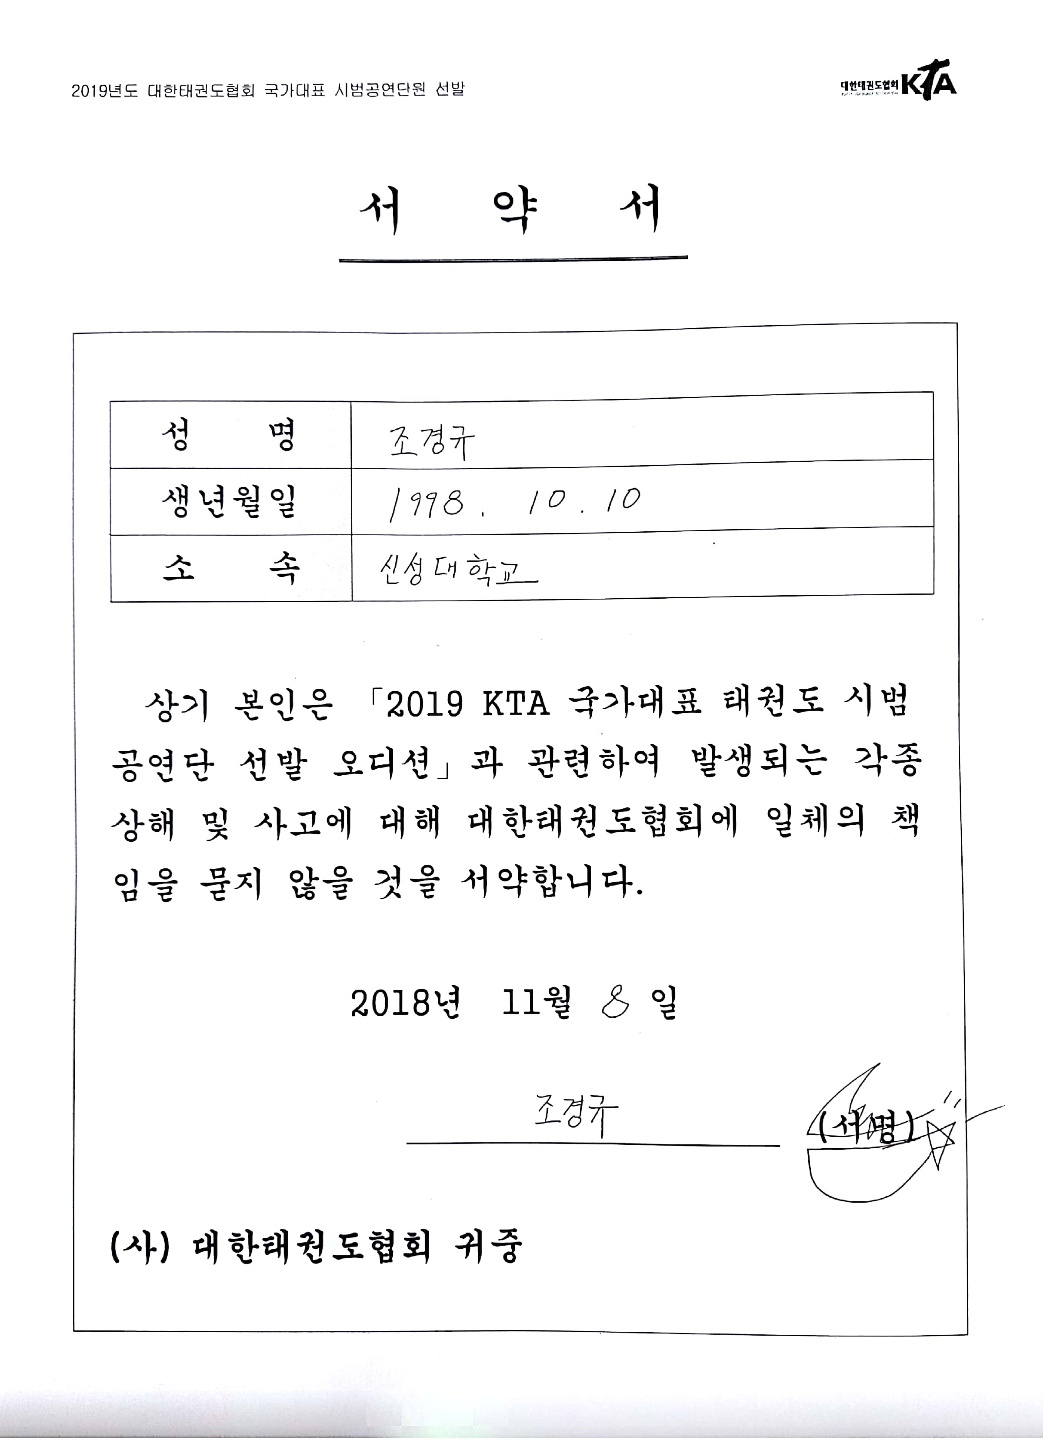 2019년도 대한태권도협회 국가대표 시범공연단원 선발
대한태권도협회 KTA
서 약 서
성 명 조경규
생년월일 1998. 10. 10
소 속 신성대학교
상기 본인은 「2019 KTA 국가대표 태권도 시범
공연단 선발 오디션」과 관련하여 발생되는 각종
상해 및 사고에 대해 대한태권도협회에 일체의 책
임을 묻지 않을 것을 서약합니다.
2018년 11월 8 일
조경규 (서명)
(사) 대한태권도협회 귀중